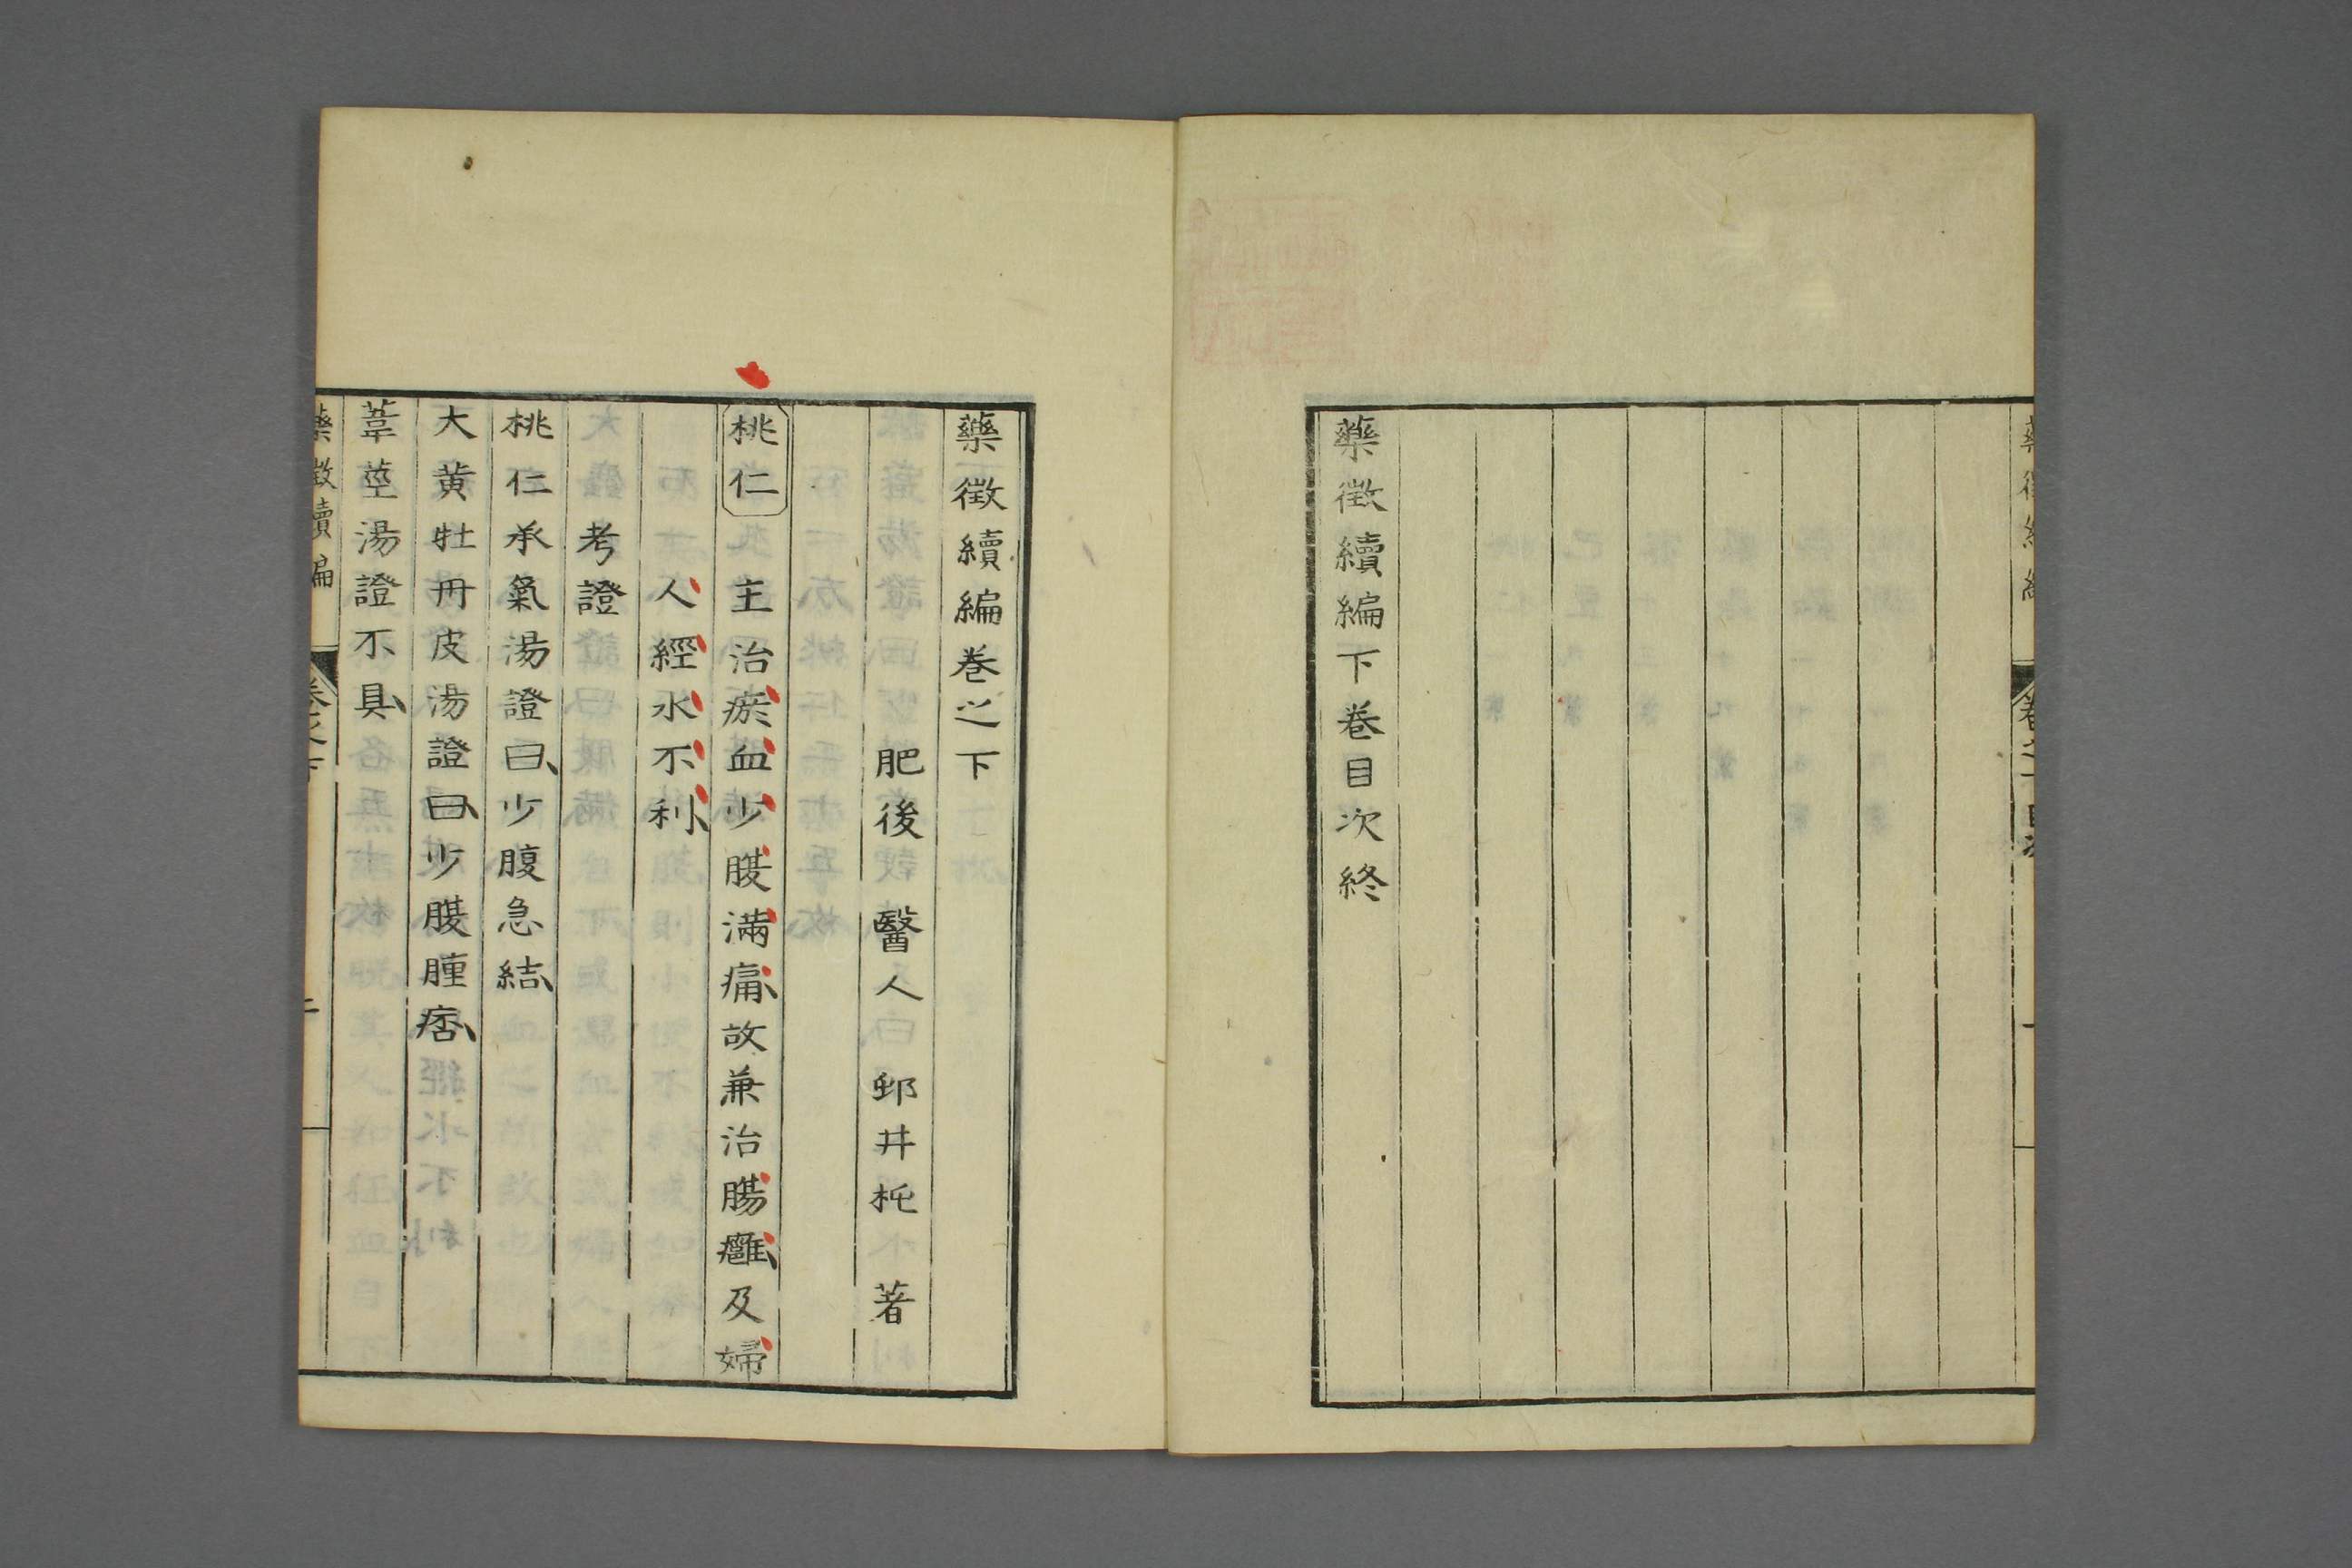 藥徴續編下卷目次終
藥徴續編卷之下
肥後 醫人 邨井杶 著
桃仁 主治瘀血少腹滿痛、故兼治腸癰、及婦
人經水不利、
考證
桃仁承氣湯證曰、少腹急結、
大黃牡丹皮湯證曰、少腹腫痞、
葦莖湯證不具、
藥徴續編 卷之下